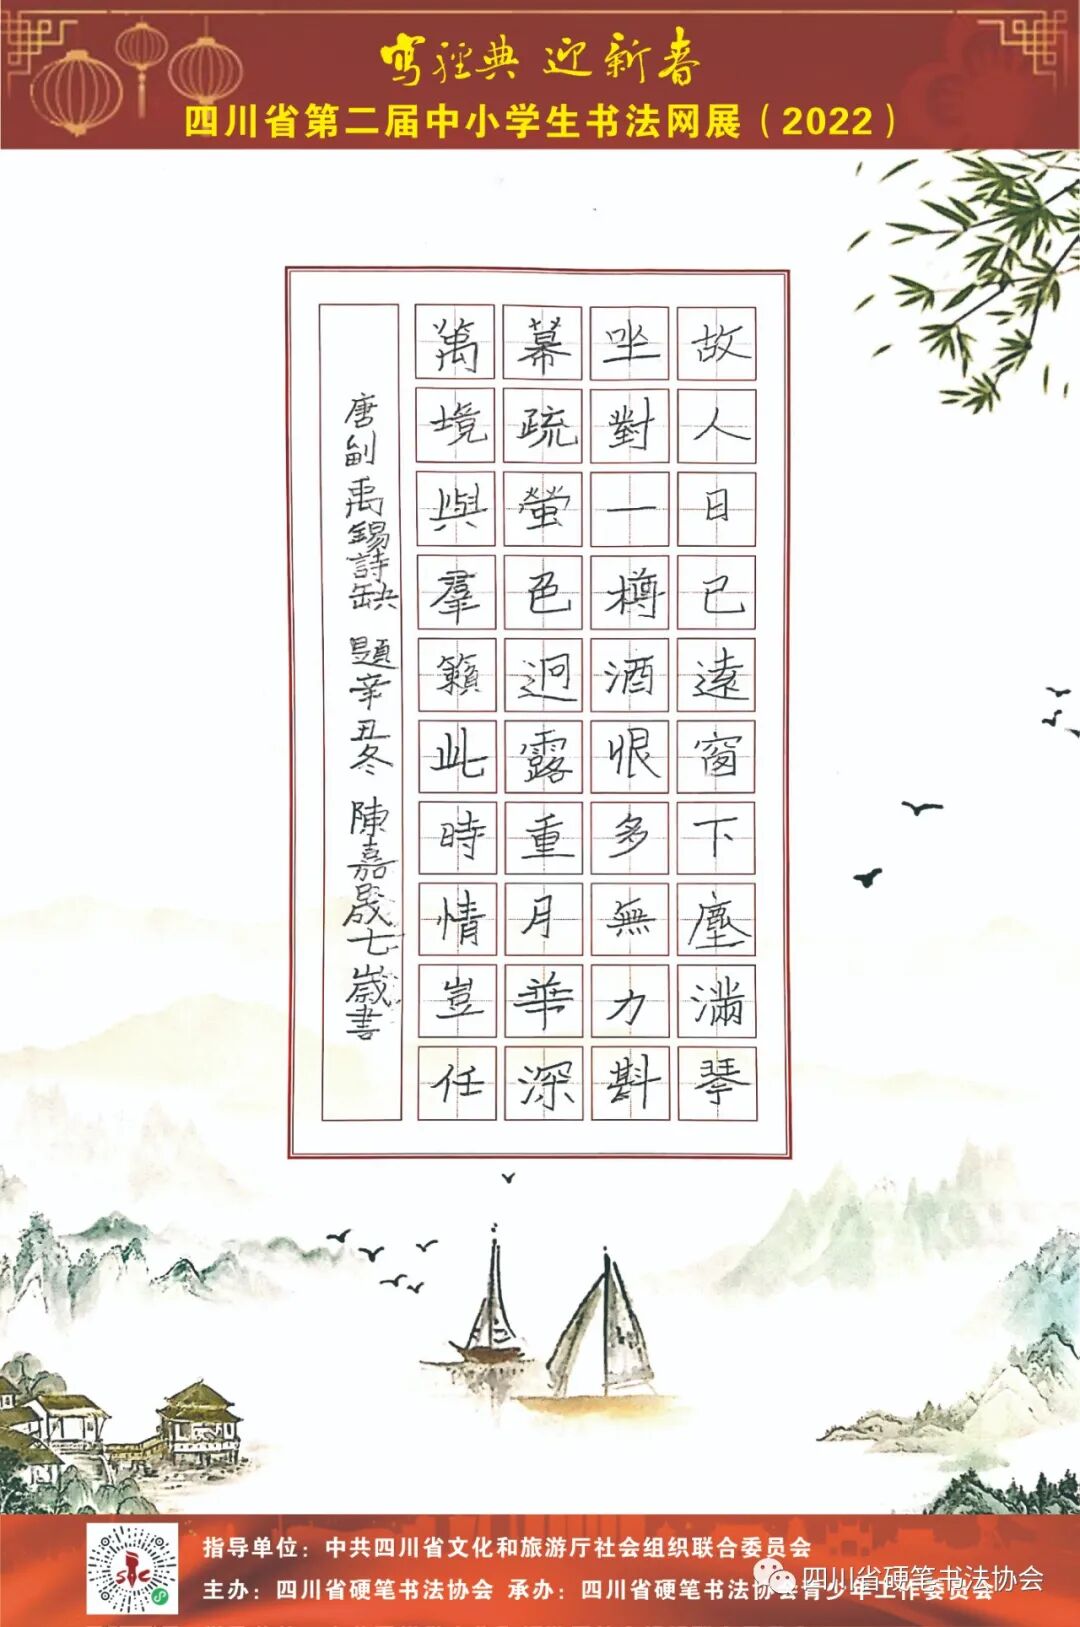 写经典 迎新春
四川省第二届中小学生书法网展（2022）
故人日已遠窗下塵滿琴
坐對一樽酒恨多無力斟
幕疏螢色迥露重月華深
萬境與羣籟此時情豈任
唐劉禹錫詩缺題辛丑冬陳嘉晟七歲書
指导单位：中共四川省文化和旅游厅社会组织联合委员会
主办：四川省硬笔书法协会 承办：四川省硬笔书法协会青少年工作委员会
四川省硬笔书法协会